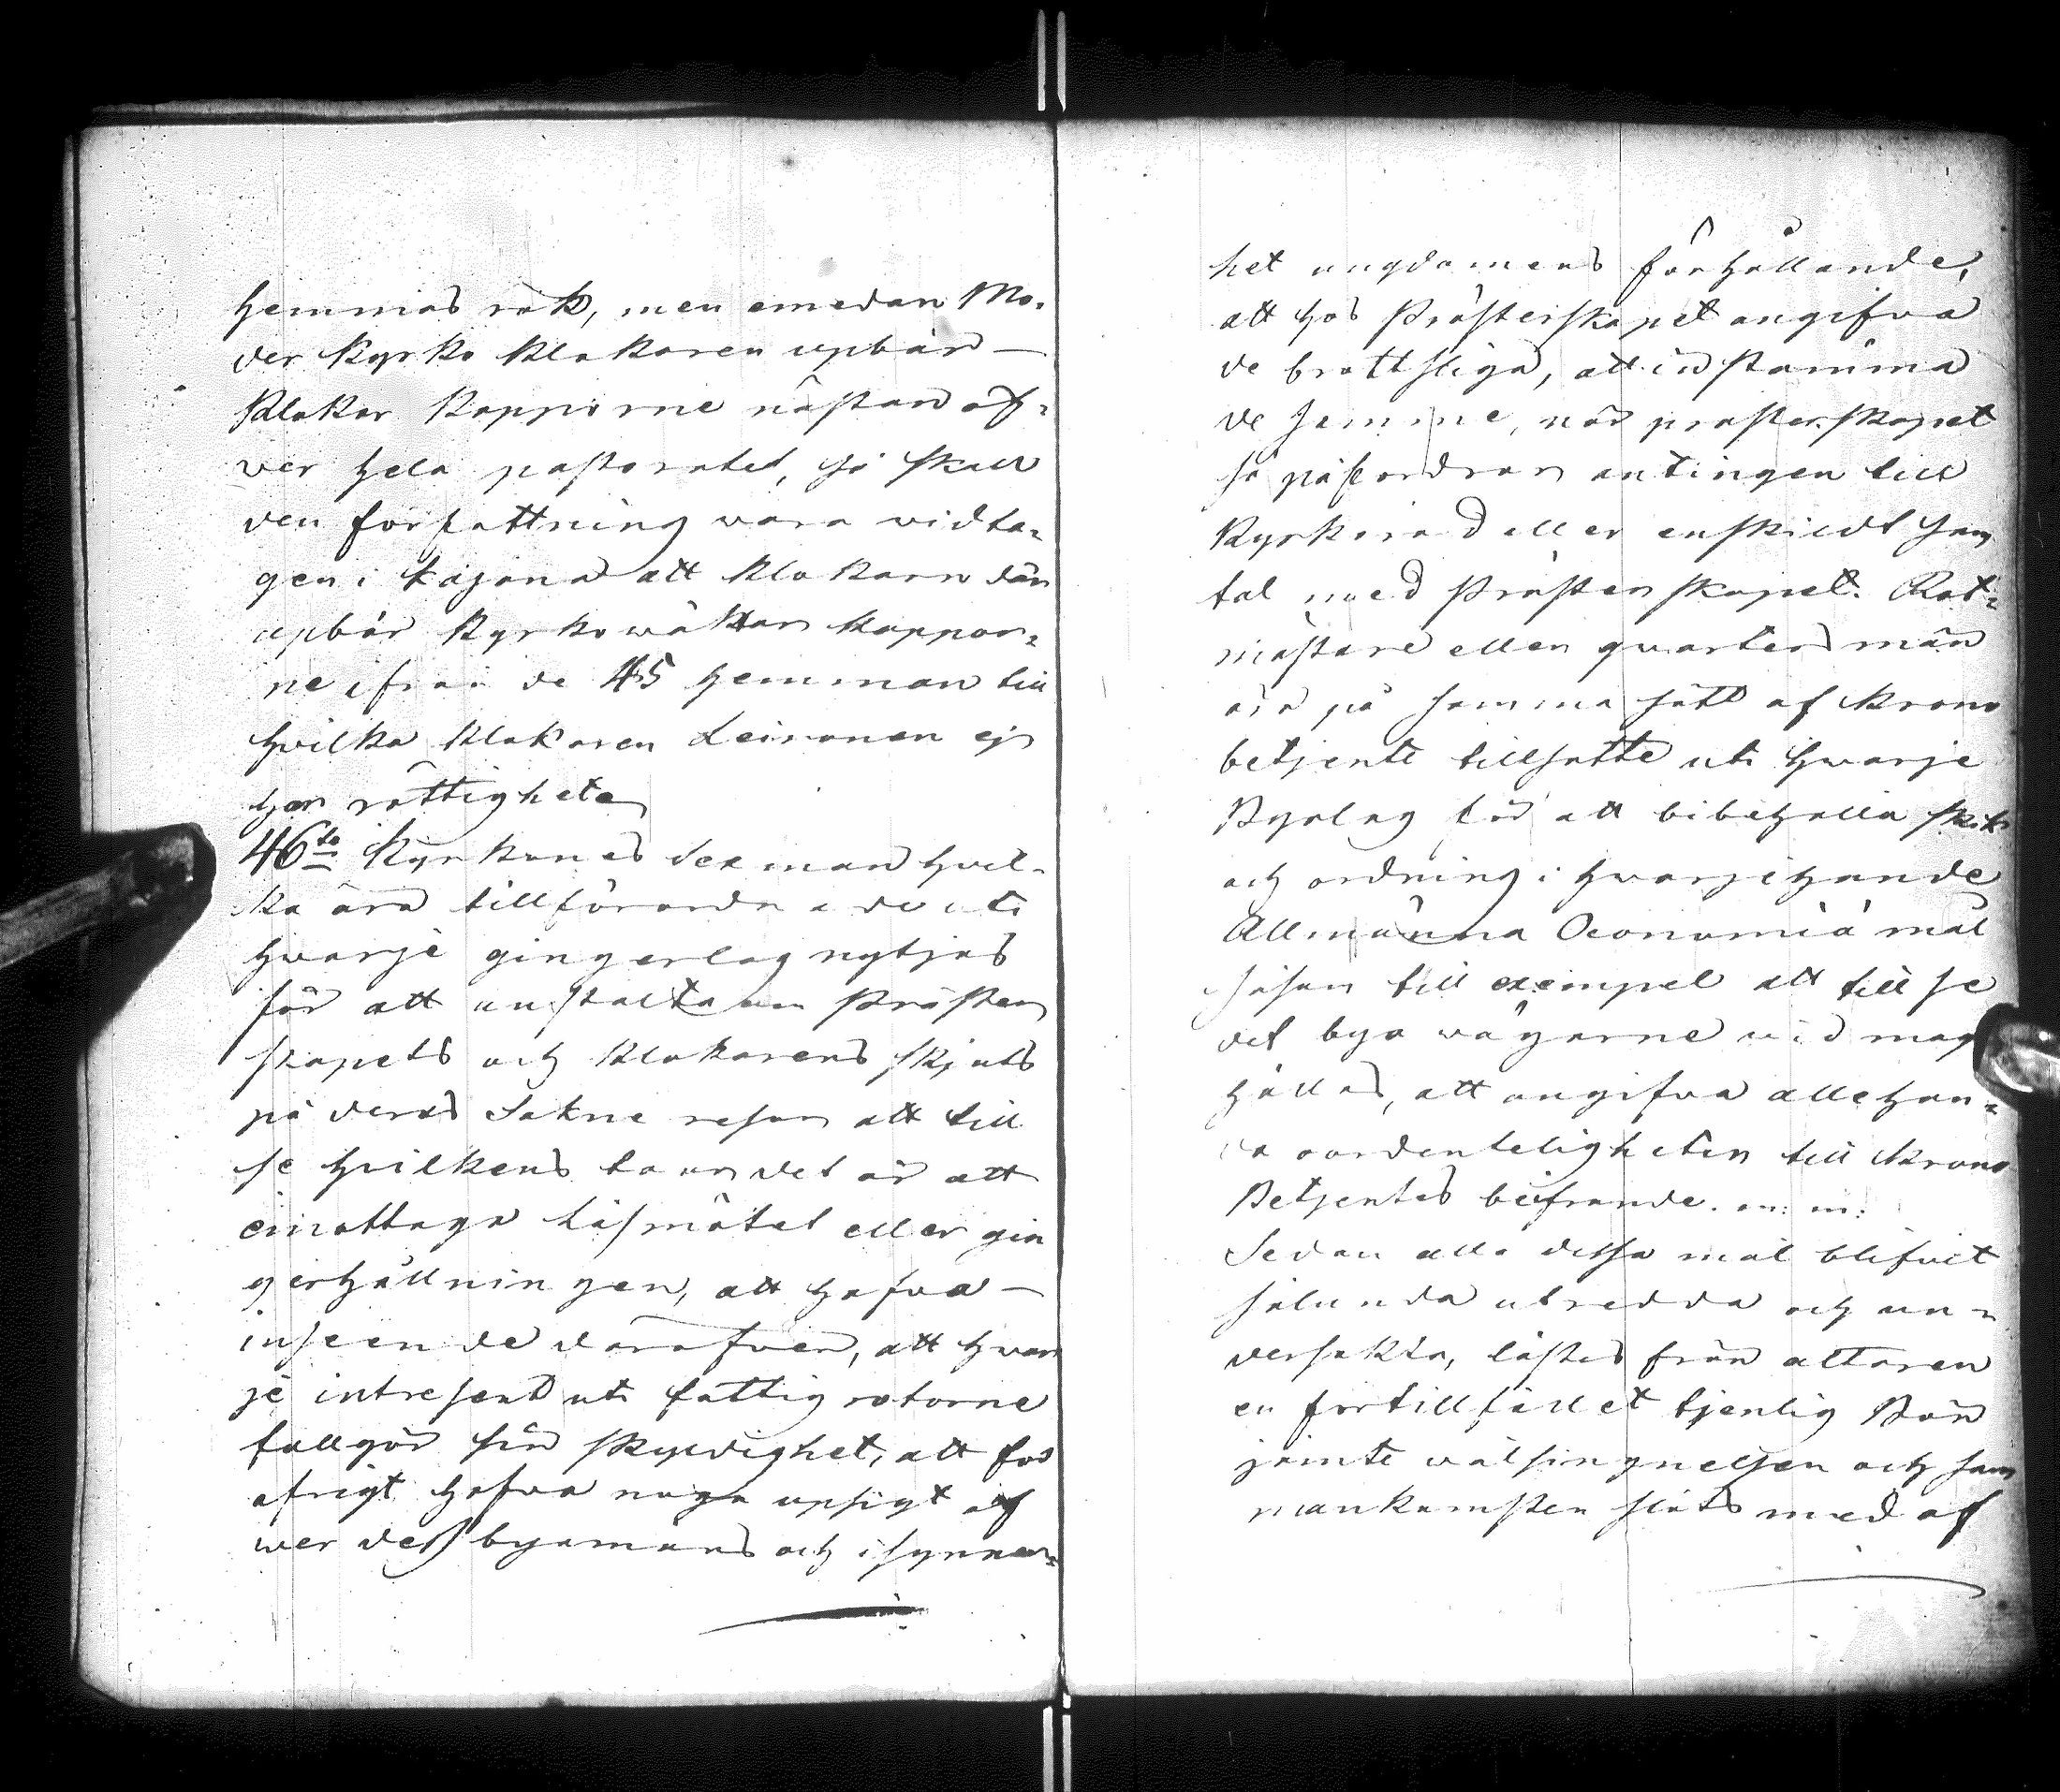 hemmas rök, men emedan Mo-
der Kyrko klokaren upbär —
Klokar kapporne nästan öf-
ver hela pastoratet, så skall
den författning wara widta-
gen i Kajana att klokarn där
upbär Kyrkowäktar kappor-
ne ifrån de 45 hemman till
hvilka klokaren Leinonen ej
har rättighete
46to Kyrkones Sexman hvil-
ka äro tillförordnade uti
hwarje gingerlag nytjas
för att anstalta om Präster
skapets och klokarens skjuts
på deras Sokne resor att till
se hvilkens tour det är att
emottaga läsmötet eller gin
gerhållningen, att hafwa —
inseende däröfwer, att hwar
je intresent uti fattig rotorne
fullgör sin skyldighet, att för
öfrigt hafwa noga upsigt öf
wer dess byamäns och isynner-
het ungdomens förhållande,
att hos Prästerskapet angifva
de brottsliga, att instämma
de samme, när prästerskapet
så påfordrar antingen till
Kyrkoråd eller enskildt Sam
tal med Prästerskapet. Rot-
mästare eller qwarters män
äro på samma sätt af Krono
betjente tillsatte uti hwarje
Byalag för att bibehålla skik
och ordning i hwarjehande
Allmänna Oeconomiä mål
såsom till exempel att till se
det bya wägarne wid magt
hållas, att angifva allehan-
da oordenteligheter till Krono
Betjentes beifrande. m: m:
Sedan alla dessa mål blifvit
sålunda utredda och un-
dersökta, lästes från altaren
en förtillfället tjenlig Bön
jämte wälsingnelsen och sam
mankomsten slöts med af